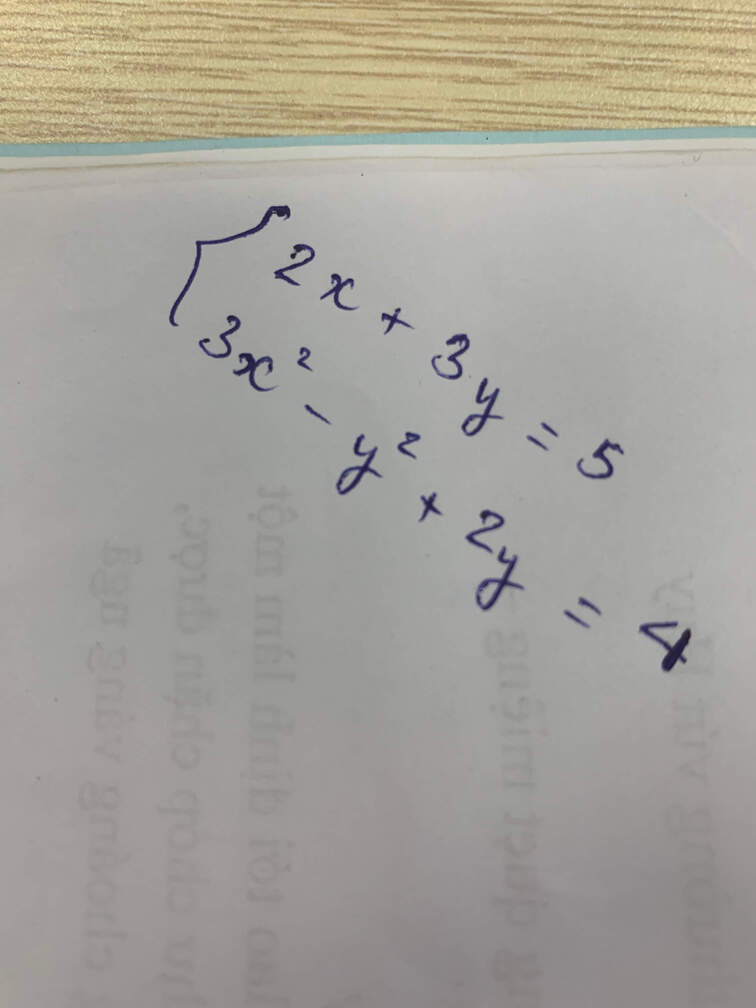 2x + 3y = 5
3x² - y² + 2y = 4